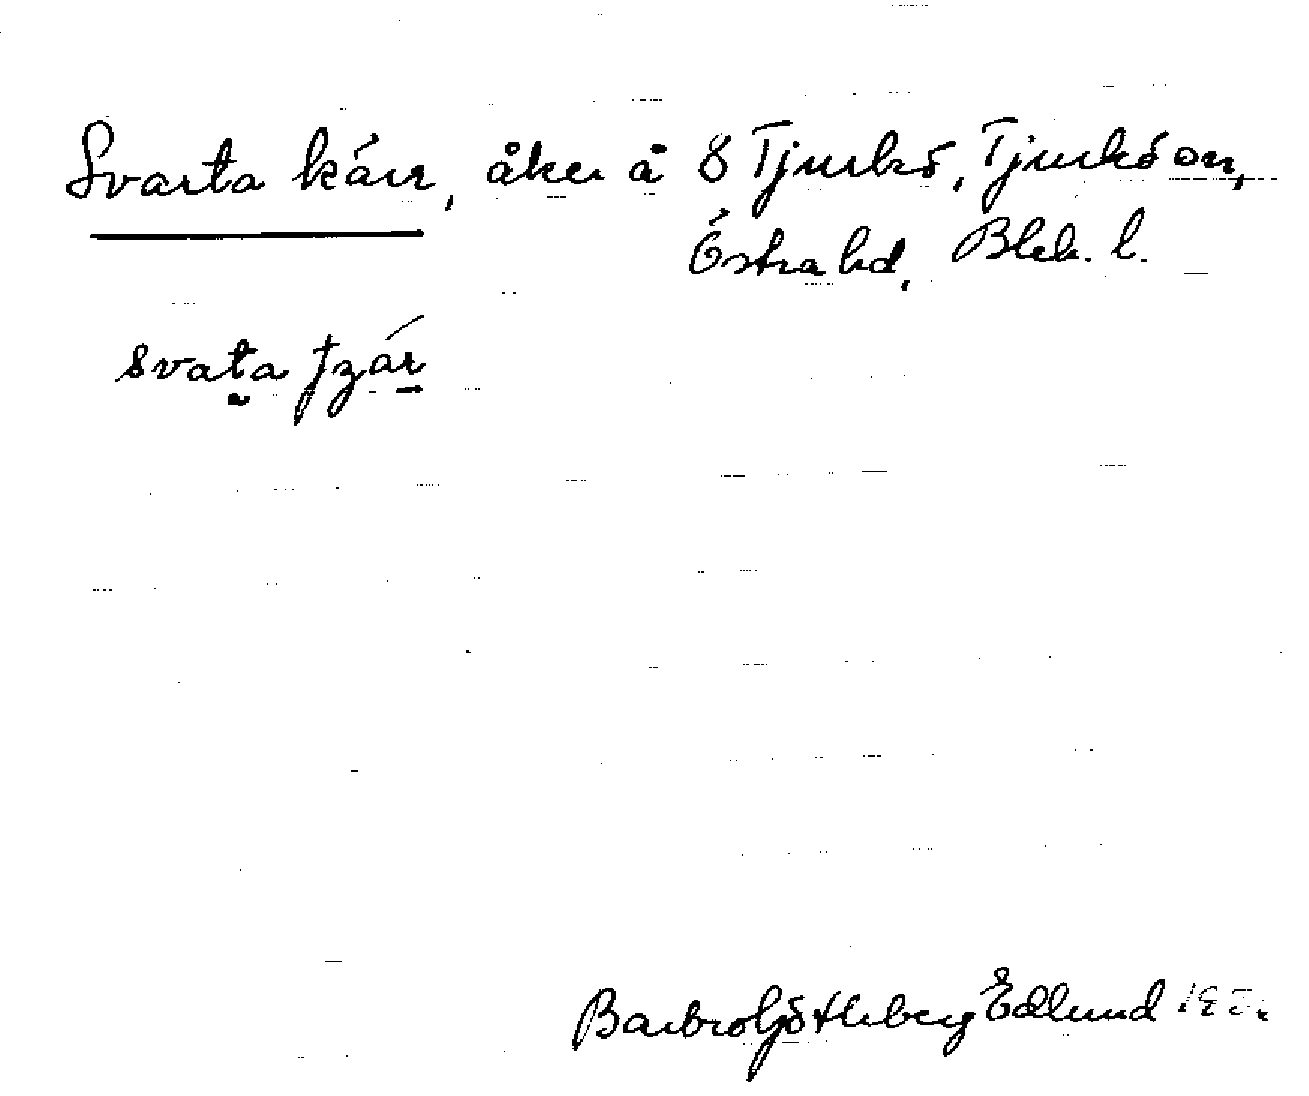 Svarta kärr, åker å 8 Tjurkö, Tjurkö sn,
Östra hd, Blek. l.
svata
Barbro Götheberg Edlund